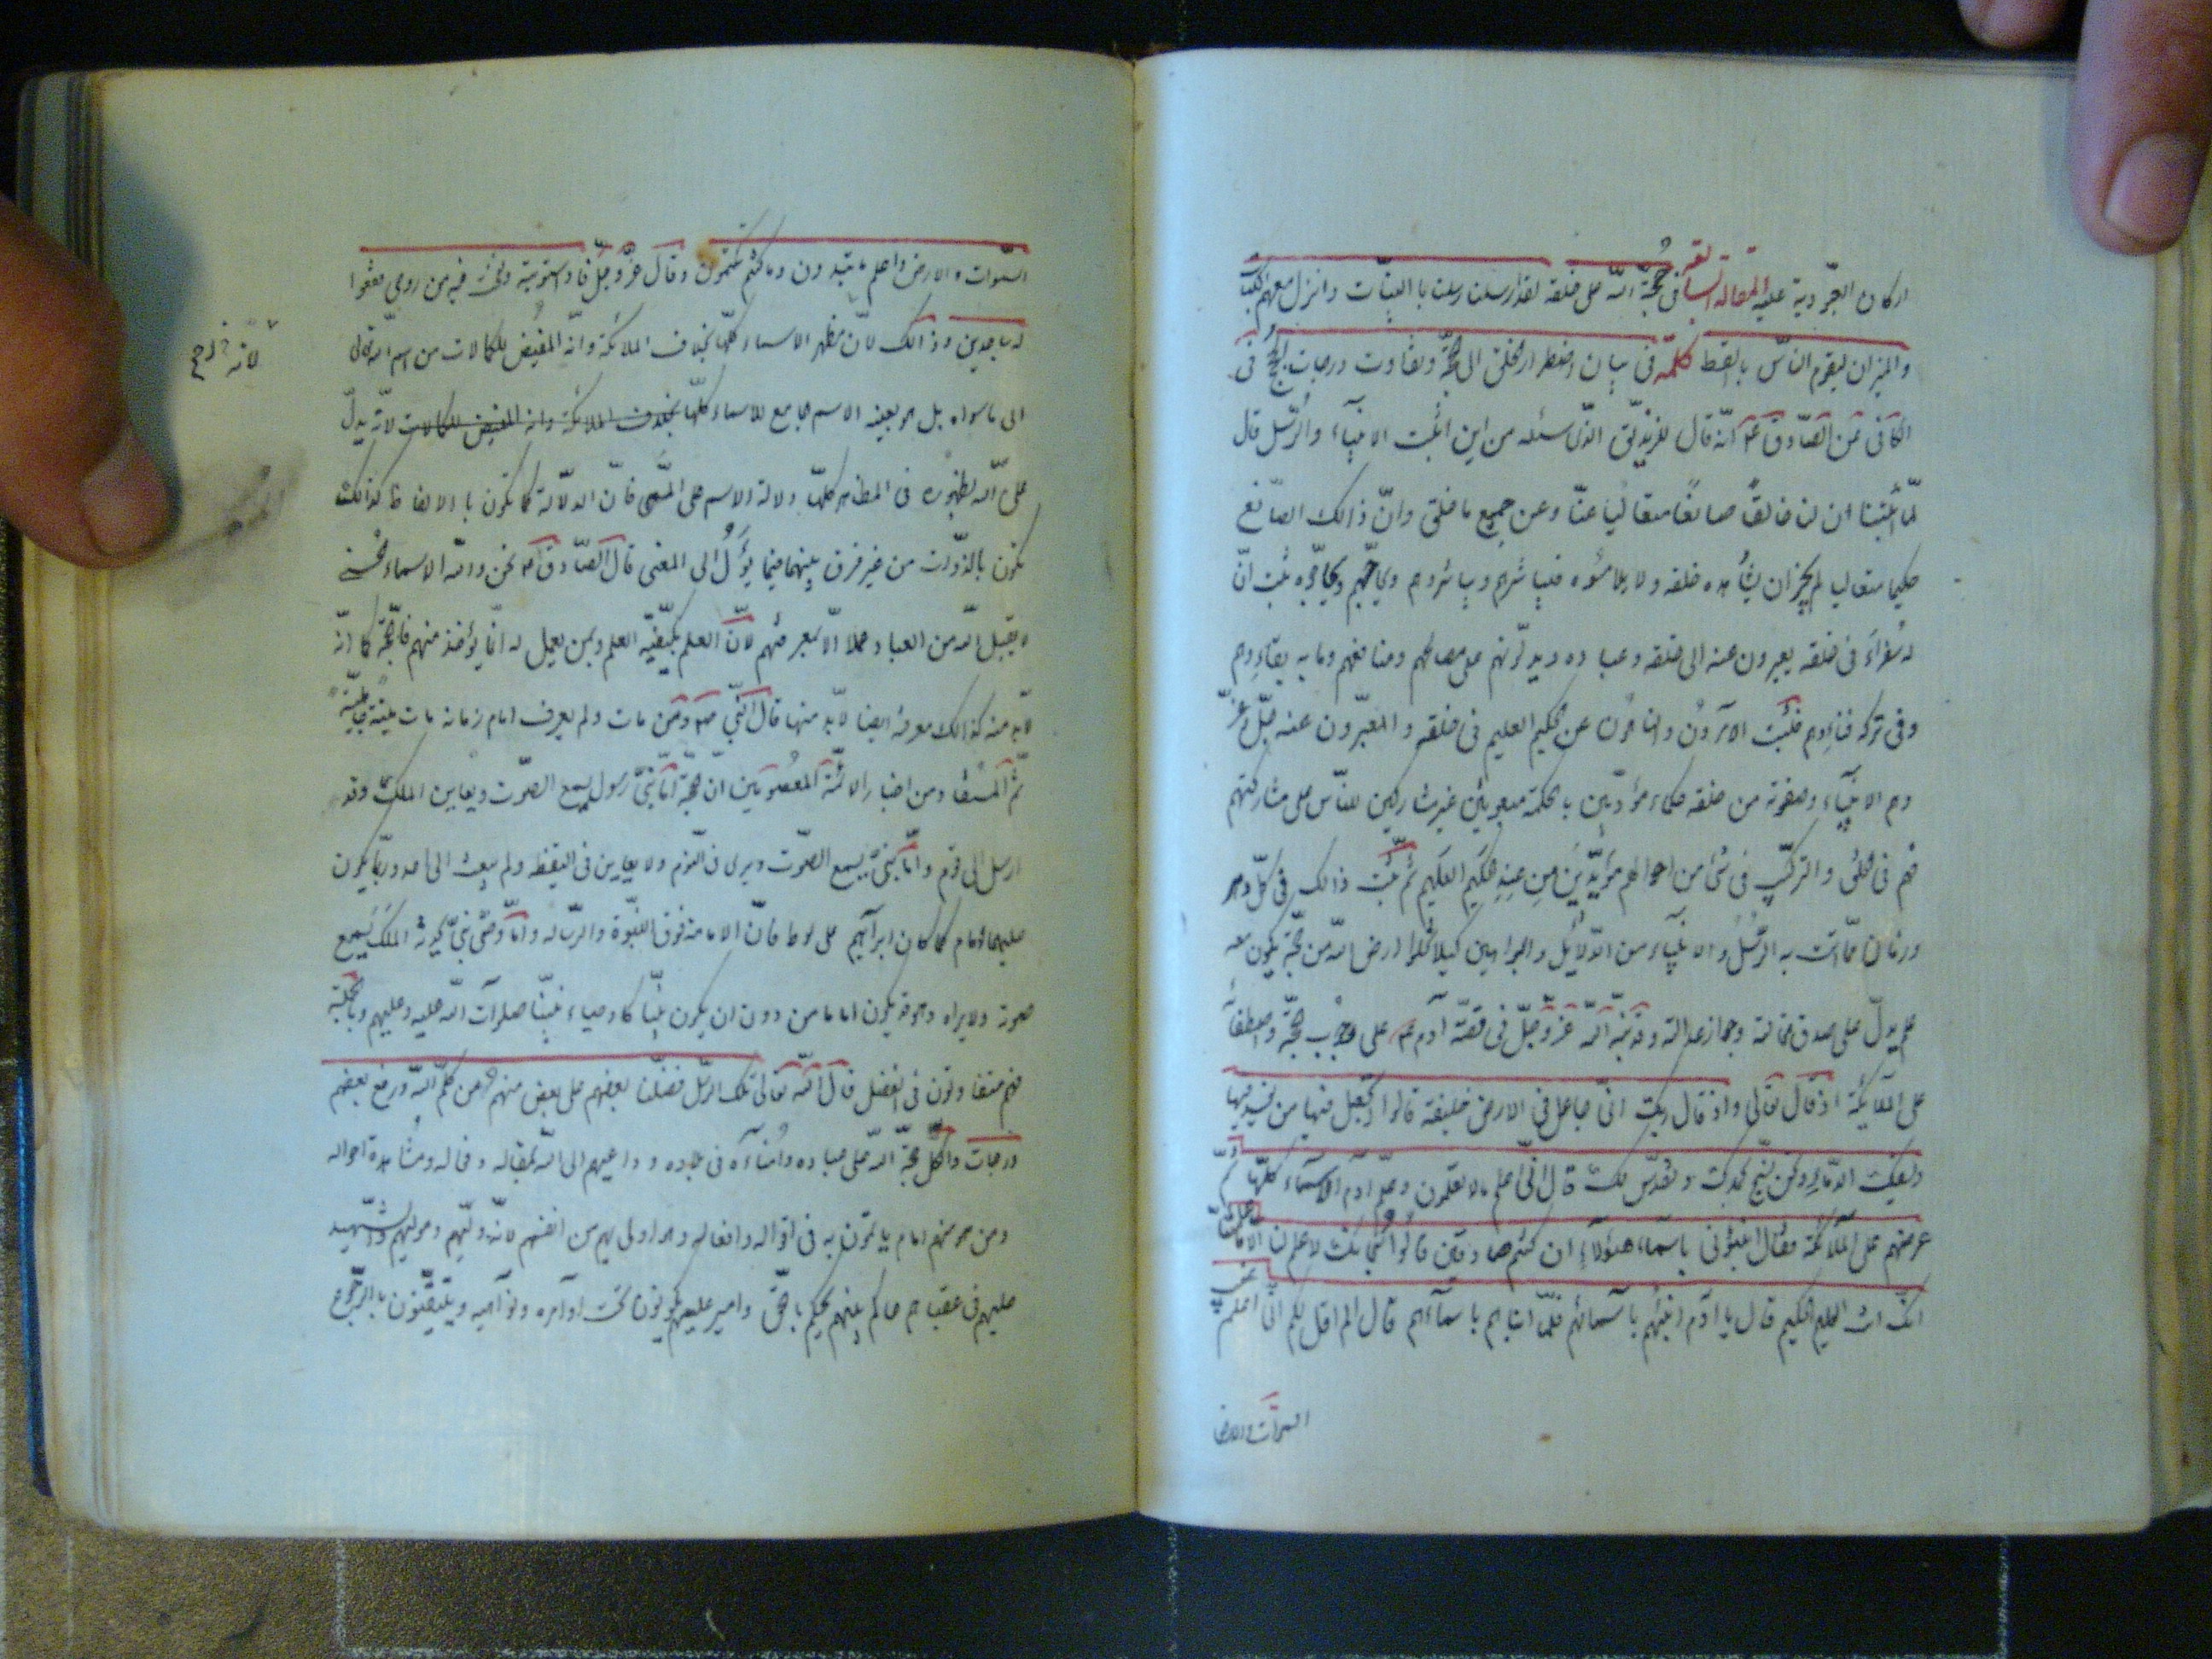 اركان العبودية عليه المقالة السابعة فى حجة الله على خلقه لقد ارسلنا رسلنا بالبينات وانزل معهم الكتاب
والميزان ليقوم الناس بالقسط كلمة فى بيان اضطرار الخلق الى الحجة وتفاوت درجات الحجج فى
الكافى عن الصادق ع انه قال للزنديق الذى سئله من اين اثبت الانبياء والرسل قال
لما اثبتنا ان لنا خالقا صانعا متعاليا عنا وعن جميع ما خلق وان ذالك الصانع
حكيما متعاليا لم يجز ان يشاهده خلقه ولا يلامسوه فيباشرهم ويباشروه ويحاجهم ويحاجوه ثبت ان
له سفراء فى خلقه يعبرون عنه الى خلقه وعباده ويدلونهم على مصالحهم ومنافعهم وما به بقاؤهم
وفى تركه فناؤهم فثبت الآمرون والناهون عن الحكيم العليم فى خلقه والمعبرون عنه جل وعز
وهم الانبياء وصفوته من خلقه حكماء مؤدبين بالحكمة مبعوثين غير مشاركين للناس على مشاركتهم
لهم فى الخلق والتركيب فى شئ من احوالهم مؤيدين من عند الحكيم العليم ثم ثبت ذالك فى كل دهر
وزمان مما اتت به الرسل والانبياء من الدلائل والبراهين كيلا تخلوا ارض الله من حجة يكون معه
علم يدل على صدق مقالته وجواز عدالته وقد نبه الله عز وجل فى قصة آدم ع على وجوب الحجة واصطفائه
على الملائكة اذ قال تعالى واذ قال ربك انى جاعل فى الارض خليفة قالوا اتجعل فيها من يفسد فيها
ويسفك الدماء ونحن نسبح بحمدك ونقدس لك قال انى اعلم ما لا تعلمون وعلم آدم الاسماء كلها ثم
عرضهم على الملائكة فقال انبئونى باسماء هؤلاء ان كنتم صادقين قالوا سبحانك لا علم لنا الا ما علمتنا
انك انت العليم الحكيم قال يا آدم انبئهم باسمائهم فلما انباهم باسمائهم قال الم اقل لكم انى اعلم غيب
السموات والارض
السموات والارض واعلم ما تبدون وما كنتم تكتمون وقال عز وجل فاذا سويته ونفخت فيه من روحى فقعوا
له ساجدين وذالك لان مظهر الاسماء كلها بخلاف الملائكة وانه المفيض للكمالات من اسم الله تعالى
الى ما سواه بل هو بعينه الاسم الجامع للاسماء كلها بخلاف الملائكة وانه المفيض للكمالات لانه يدل
على الله بظهوره فى المظاهر كلها دلالة الاسم على المسمى فان الدلالة كما تكون بالالفاظ كذالك
تكون بالذوات من غير فرق بينهما فيما يؤل الى المعنى قال الصادق ع نحن والله الاسماء الحسنى
لا يقبل الله من العباد عملا الا بمعرفتهم لان العلم بكيفية العلم وبمن يعمل له انما يؤخذ منهم فالحجة كما انه
لابد منه كذالك معرفته ايضا لابد منها قال النبى ص ومن مات ولم يعرف امام زمانه مات ميتة جاهلية
ثم المستفاد من اخبار الائمة المعصومين ان الحجة اما نبى رسول يسمع الصوت ويعاين الملك وقد
ارسل الى قوم واما نبى يسمع الصوت ويرى فى النوم ولا يعاين فى اليقظه ولم يبعث الى احد وربما يكون
عليهما امام كما كان ابراهيم على لوط فان الامامة فوق النبوة والرسالة واما وصى نبى يحدثه الملك يسمع
صوته ولا يراه وهو قد يكون اماما من دون ان يكون نبيا كاوصياء نبينا صلوات الله عليه وعليهم وبالجملة
فهم متفاوتون فى الفضل قال الله تعالى تلك الرسل فضلنا بعضهم على بعض منهم من كلم الله ورفع بعضهم
درجات والكل حجة الله على عباده وامناؤه فى بلاده وداعيهم الى الله بمقاله وفعاله ومشاهدة احواله
ومن هو منهم امام ياتمون به فى اقواله وافعاله وهو اولى بهم من انفسهم لانه وليهم ومولاهم والشهيد
عليهم فى عقباهم حاكم بينهم يحكم بالحق وامير عليهم يكونون تحت اوامره ونواهيه ويتيقنون بالرجوع